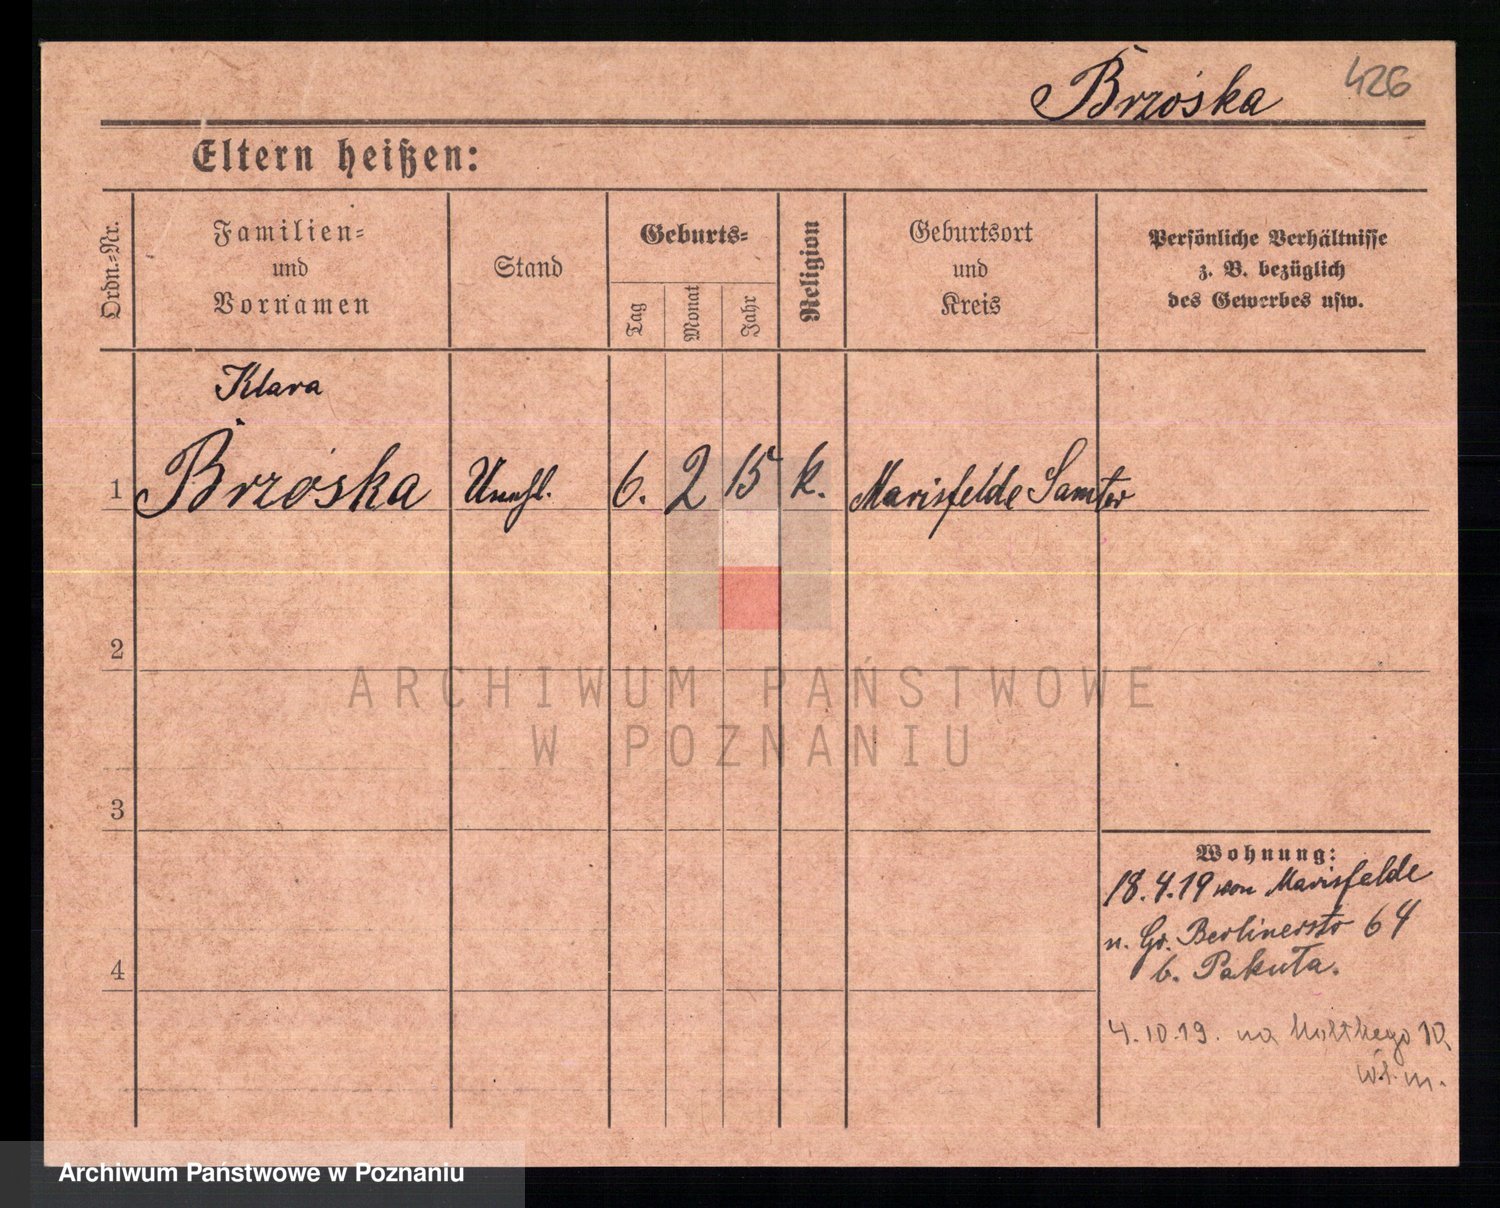 Brzóska 426
Eltern heißen:
Ordn.-Nr.
Familien-
und
Vornamen
Stand
Geburts-
Tag
Monat
Jahr
Religion
Geburtsort
und
Kreis
Persönliche Verhältnisse
z. B. bezüglich
des Gewerbes usw.
Klara
1 Brzóska 6. 2 15 k. Marisfelde Samter
2
3
4
Wohnung:
18.4.19 von Marisfelde
n. Gr. Berlinerstr 64
b. Pakuła.
4.10.19. na Moltkego 10,
wł. m.
ARCHIWUM PAŃSTWOWE
W POZNANIU
Archiwum Państwowe w Poznaniu